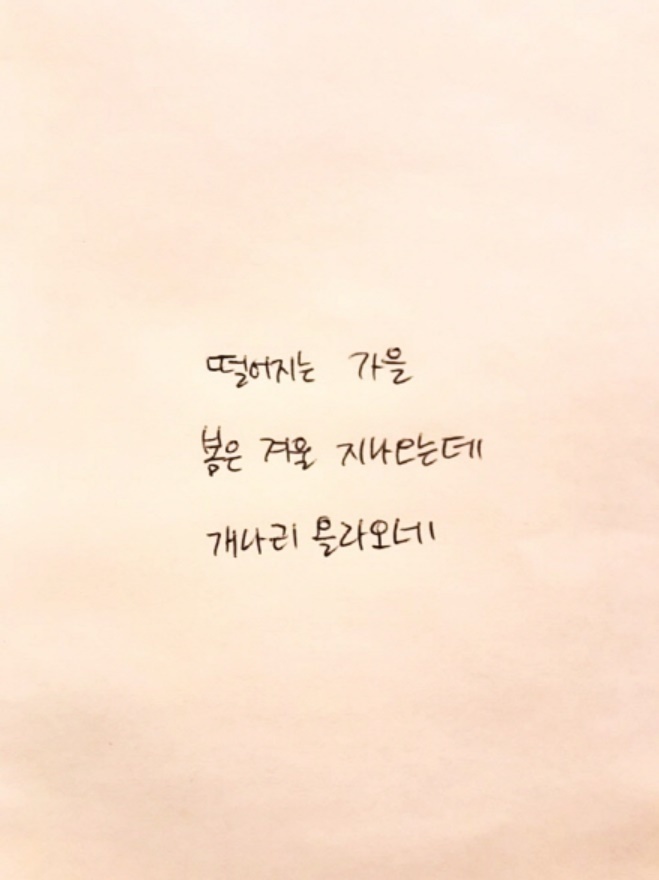 떨어지는 가을
봄은 겨울 지나오는데
개나리 올라오네